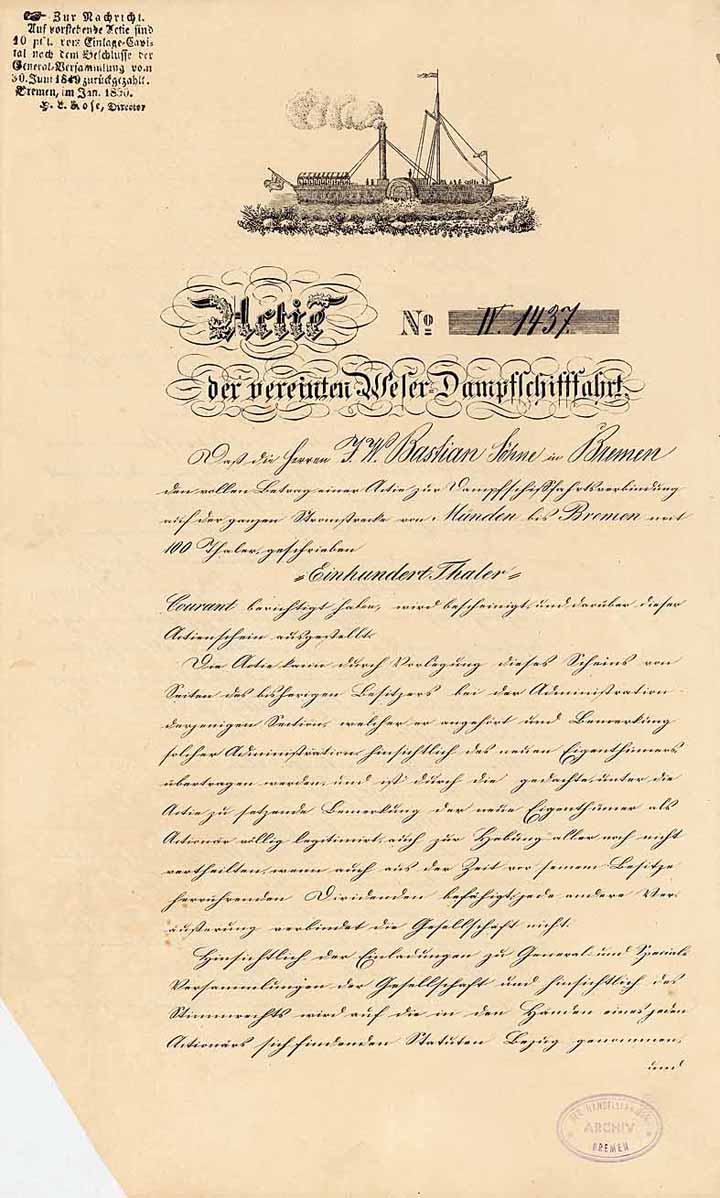 Zur Nachricht.
Auf vorstehende Actie sind
10 pCt. vom Einlage-Capi-
tal nach dem Beschlusse der
General-Versammlung vom
30. Juni 1849 zurückgezahlt.
Bremen, im Jan. 1850.
Director
Actie No IV. 1437.
der vereinten Weser-Dampfschifffahrt.
Daß die Herren J. W. Bastian Söhne in Bremen
den vollen Betrag einer Actie zur Dampfschifffahrtsverbindung
auf der ganzen Stromstrecke von Münden bis Bremen mit
100 Thaler, geschrieben
=Einhundert Thaler=
Courant berichtigt haben, wird bescheinigt, und darüber dieser
Actienschein ausgestellt.
Die Actie kann durch Vorlegung dieses Scheins von
Seiten des bisherigen Besitzers bei der Administration
derjenigen Section, welcher er angehört und Bemerkung
solcher Administration hinsichtlich des neuen Eigenthümers
übertragen werden, und ist durch die gedachte, unter die
Actie zu setzende Bemerkung der neue Eigenthümer als
Actionär völlig legitimirt, auch zur Hebung aller noch nicht
vertheilten, wenn auch aus der Zeit vor seinem Besitze
herrührenden Dividenden befähigt; jede andere Ver-
äußerung verbindet die Gesellschaft nicht.
Hinsichtlich der Einladungen zu General- und Special-
Versammlungen der Gesellschaft und hinsichtlich des
Stimmrechts wird auf die in den Händen eines jeden
Actionärs sich findenden Statuten Bezug genommen,
und
ARCHIV
BREMEN